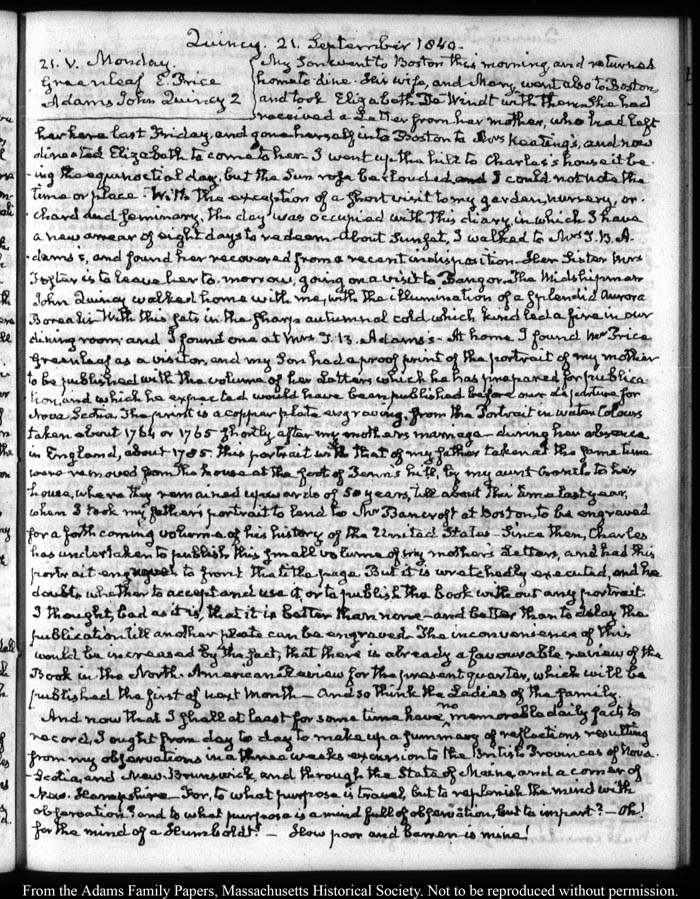 Quincy. 21. September 1840.
21. V. Monday.
Greenleaf E. Price
Adams John Quincy 2
My Son went to Boston this morning, and returned
home to dine. His wife, and Mary went also to Boston,
and took Elizabeth De Windt with them. She had
received a Letter from her mother, who had left
her here last Friday, and gone herself into Boston to Mrs Keating's, and now
directed Elizabeth to come to her. I went up the hill to Charles's house it be-
-ing the equinoctial day, but the Sun rose beclouded, and I could not note the
time or place. With the exception of a short visit to my garden, nursery, or-
chard and seminary, the day was occupied with this diary, in which I have
a new arrear of eight days to redeem. About Sunset, I walked to Mrs T. B. A-
dams's, and found her recovered from a recent indisposition. Her Sister Mrs
Foster is to leave her to-morrow, going on a visit to Bangor. The Midshipman
John Quincy walked home with me, with the illumination of a splendid Aurora
Borealis. With this sets in the sharp autumnal cold which kindled a fire in our
dining room, and I found one at Mrs T. B. Adams's. At home I found Mr Price
Greenleaf as a visitor, and my Son had a proof print of the portrait of my mother
to be published with the volume of her Letters which he has prepared for publica-
tion, and which he expected would have been published before our departure for
Nova Scotia. The print is a copper plate engraving, from the Portrait in water Colours
taken about 1764 or 1765 shortly after my mothers marriage—during her absence
in England, about 1785. this portrait with that of my father taken at the same time
were removed from the house at the foot of Penn's hill, by my aunt Cranch to her
house, where they remained upwards of 50 years, till about this time last year,
when I took my father's portrait to lend to Mr Bancroft at Boston, to be engraved
for a forth coming volume of his history of the United States. Since then, Charles
has undertaken to publish this small volume of my mothers Letters, and had this
portrait engraved to front the title page. But it is wretchedly executed, and he
doubts whether to accept and use it, or to publish the book without any portrait
I thought, bad as it is, that it is better than none—and better than to delay the
publication till another plate can be engraved. The inconvenience of this
would be increased by the fact, that there is already a favourable review of the
Book in the North-American Review for the present quarter, which will be
published the first of next month—And so think the Ladies of the family.
And now that I shall at least for some time have no memorable daily facts to
record, I ought from day to day to make up a summary of reflections resulting
from my observations in a three weeks excursion to the British Provinces of Nova-
-Scotia, and New-Brunswick, and through the State of Maine, and a corner of
New-Hampshire—For, to what purpose is travel, but to replenish the mind with
observation? and to what purpose is a mind full of observation, but to impart?—Oh!
for the mind of a Humboldt!—How poor and barren is mine!
From the Adams Family Papers, Massachusetts Historical Society. Not to be reproduced without permission.